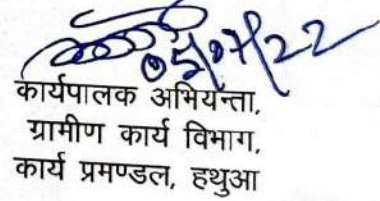 05/07/22
कार्यपालक अभियन्ता,
ग्रामीण कार्य विभाग,
कार्य प्रमण्डल, हथुआ